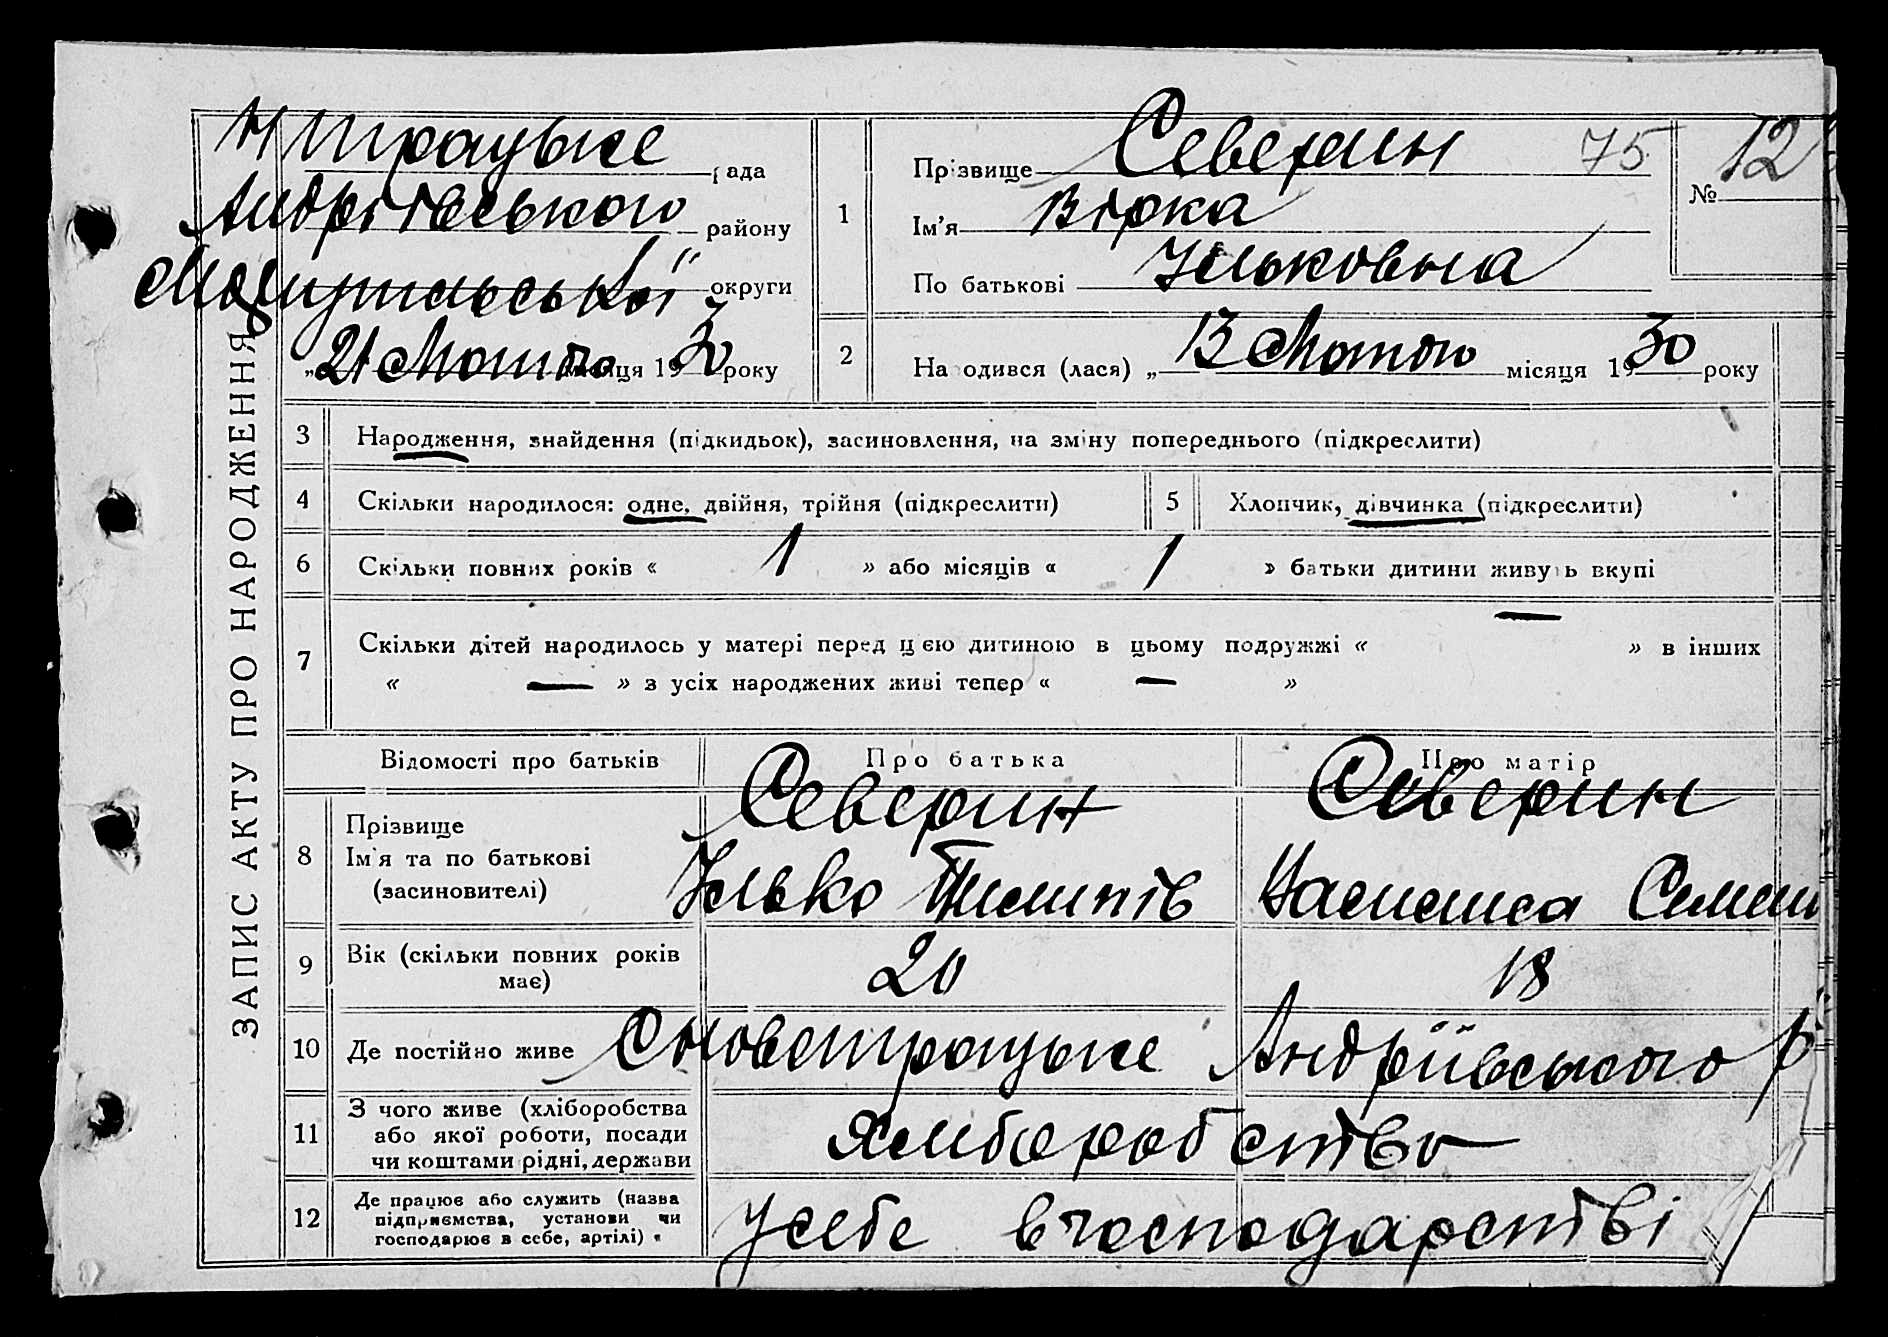 ЗАПИС АКТУ ПРО НАРОДЖЕННЯ
Н Троуцьке рада
Андріївського району
округи
„21 Лютого місяця 1930 року
1
Прізвище Северин 75
Ім'я Вірка
По батькові Ульковна
№ 12
2
На одився (лася) „ 13 Лютого місяця 1930 року
3 Народження, знайдення (підкидьок), засиновлення, на зміну попереднього (підкреслити)
4 Скільки народилося: одне, двійня, трійня (підкреслити) 5 Хлопчик, дівчинка (підкреслити)
6 Скільки повних років « 1 » або місяців « 1 » батьки дитини живуть вкупі
7 Скільки дітей народилось у матері перед цією дитиною в цьому подружжі « — » в інших
« — » з усіх народжених живі тепер « — »
Відомості про батьків Про батька Про матір
8 Прізвище Северин Северин
Ім'я та по батькові
(засиновителі) Улько Пилипів
9 Вік (скільки повних років має) 20 18
10 Де постійно живе С Новотроуцьке Андріївського р
11 З чого живе (хліборобства
або якої роботи, посади
чи коштами рідні, держави Хлиборобство
12 Де працює або служить (назва
підприємства, установи чи
господарює в себе, артілі) У себе в господарстві